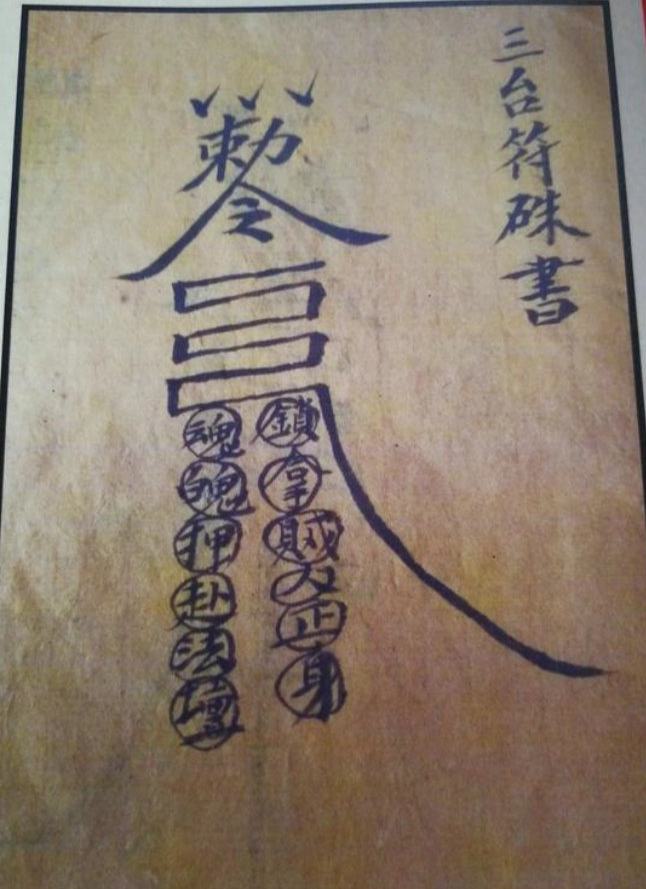 三台符硃書
敕令
鎖拿賊人正身
魂魄押赴法壇